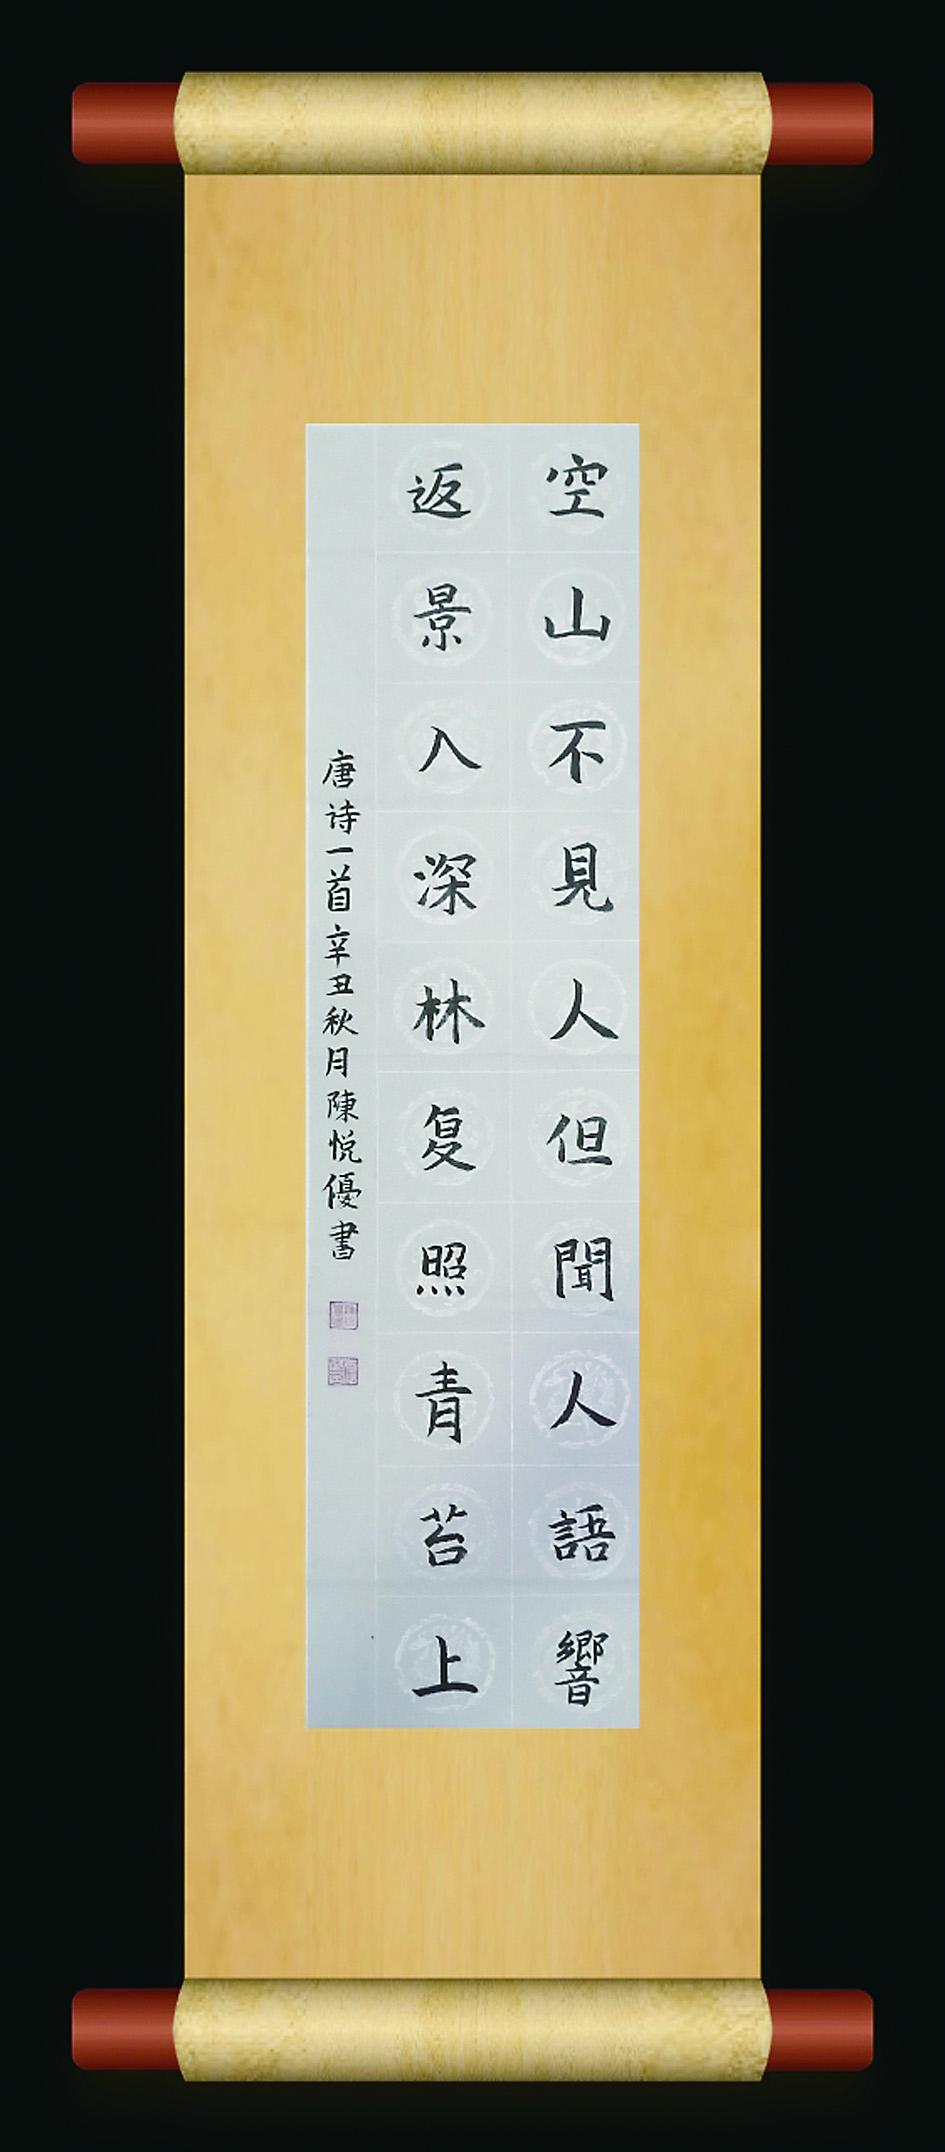 空山不見人但聞人語響
返景入深林复照青苔上
唐诗一首辛丑秋月陳悦優書